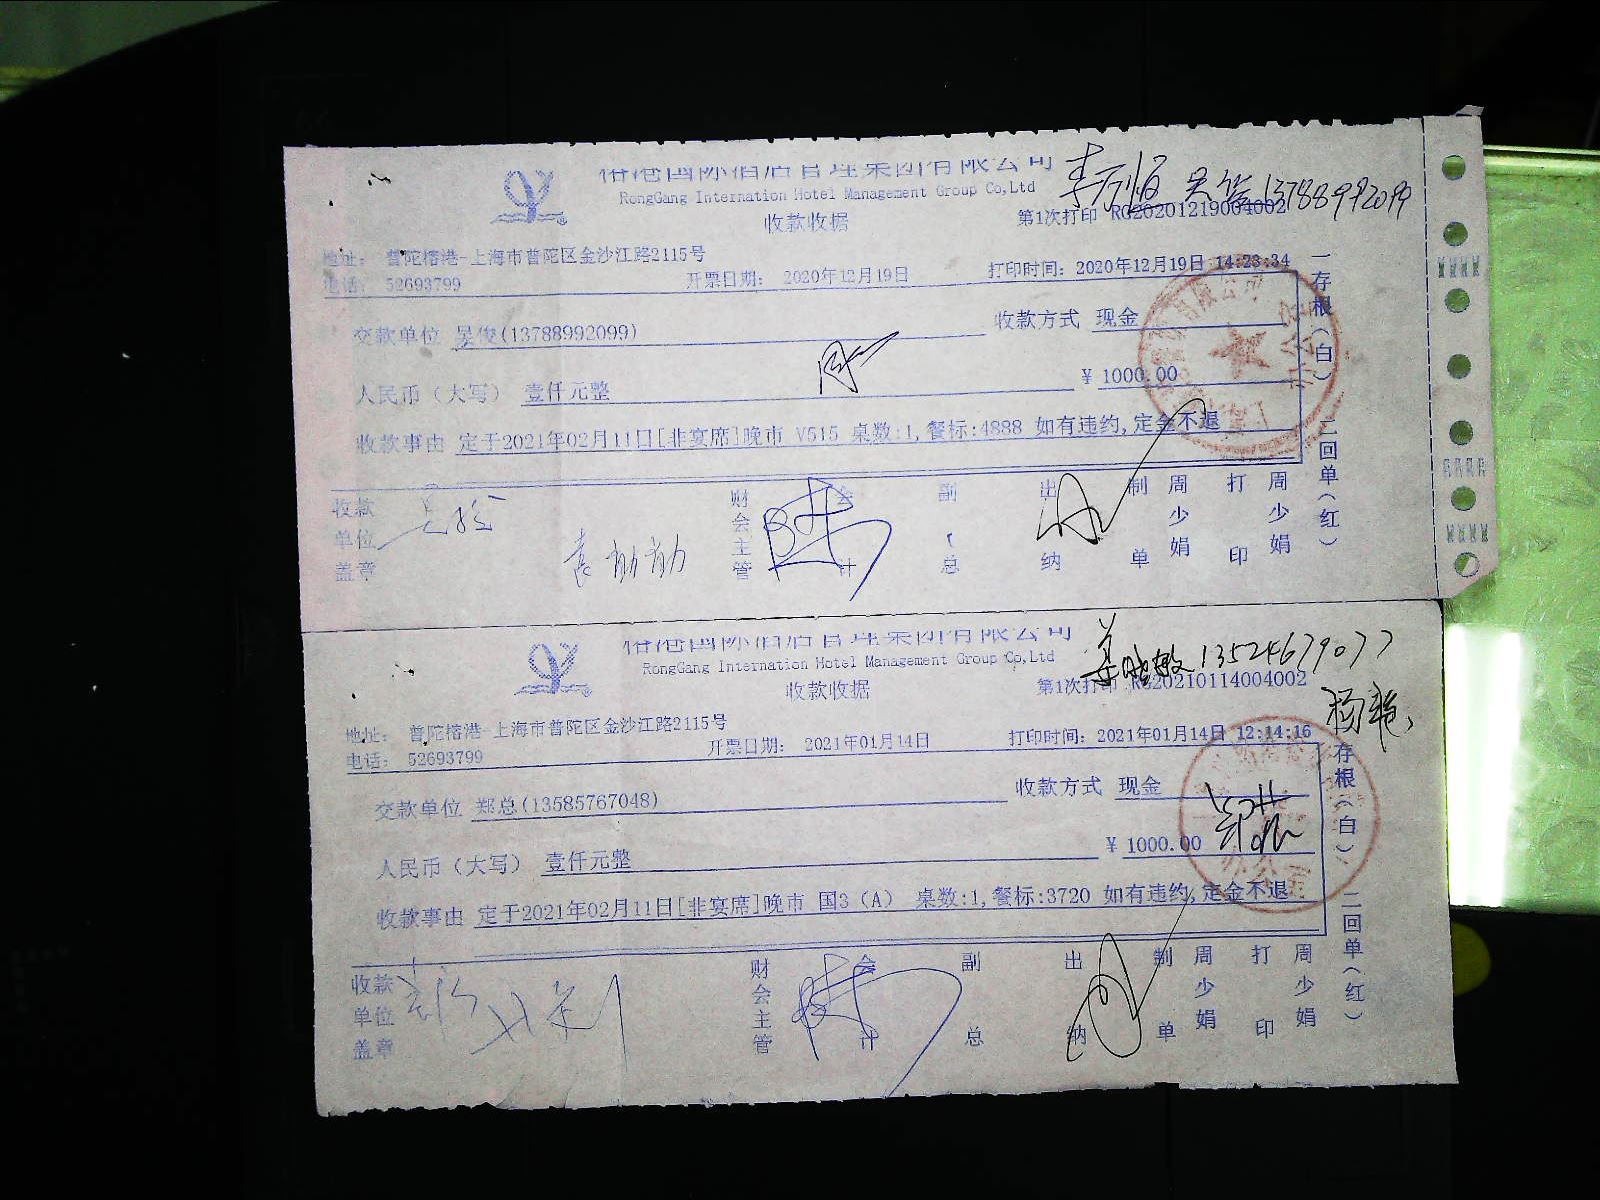 榕港国际酒店管理集团有限公司
RongGang International Hotel Management Group Co,Ltd
收款收据
第1次打印 RG20201219004002
13788992099
地址: 普陀榕港-上海市普陀区金沙江路2115号
电话: 52693799
开票日期: 2020年12月19日
打印时间: 2020年12月19日 14:23:34
交款单位 吴俊(13788992099)
收款方式 现金
人民币（大写） 壹仟元整
¥ 1000.00
收款事由 定于2021年02月11日[非宴席]晚市 V515 桌数:1,餐标:4888 如有违约,定金不退
一存根(白) 二回单(红)
收款单位盖章
财会主管
会计
副总
出纳
制单
周少娟
打印
周少娟
榕港国际酒店管理集团有限公司
RongGang International Hotel Management Group Co,Ltd
收款收据
第1次打印 RG20210114004002
13524679077
地址: 普陀榕港-上海市普陀区金沙江路2115号
电话: 52693799
开票日期: 2021年01月14日
打印时间: 2021年01月14日 12:14:16
交款单位 郑总(13585767048)
收款方式 现金
人民币（大写） 壹仟元整
¥ 1000.00
收款事由 定于2021年02月11日[非宴席]晚市 国3（A） 桌数:1,餐标:3720 如有违约,定金不退
存根(白) 二回单(红)
收款单位盖章
财会主管
会计
副总
出纳
制单
周少娟
打印
周少娟